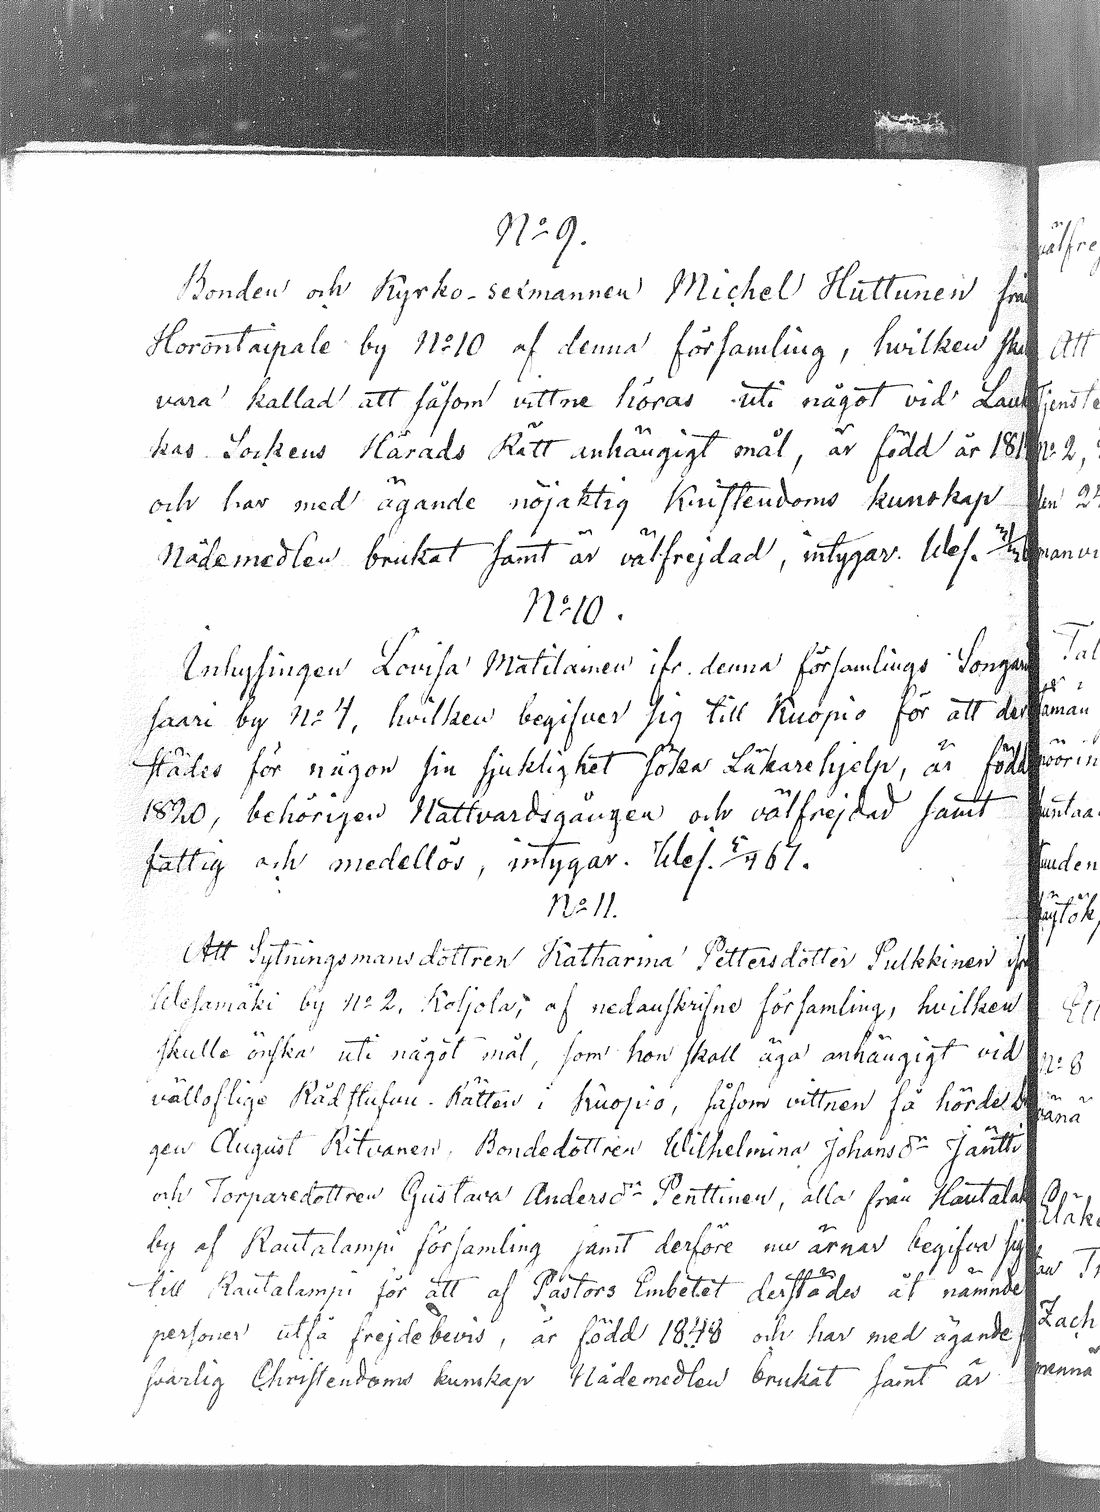 No 9.
Bonden och Kyrko-sexmannen Michel Huttunen från
Horontaipale by No 10 af denna församling, hvilken sku
vara kallad att såsom vittne höras uti något vid Lauk
kas Sockens Härads Rätt anhängigt mål, är född år 181
och har med ägande nöjaktig Kristendoms kunskap
Nådemedlen brukat samt är välfrejdad, intygar. Wesf.
No 10.
Inhysingen Lovisa Matilainen ifr. denna församlings Songari
saari by No 4, hvilken begifver sig till Kuopio för att der
städes för någon sin sjuklighet söka Läkarehjelp, är född
1820, behörigen Nattvardsgången och välfrejdad samt
fattig och medellös, intygar. Wesf. 5/4 67.
No 11.
Att Sytningsmansdottren Katharina Pettersdotter Pulkkinen ifr
Wesamäki by No 2, Koljola, af nedanskrifne församling, hvilken
skulle önska uti något mål, som hon skall äga anhängigt vid
välloflige Rådstufvu-Rätten i Kuopio, såsom vittnen få hörde D
gen August Ritvanen, Bondedottren Wilhelmina Johansdr Jäntti
och Torparedottren Gustava Andersdr Penttinen, alla från Hautala
by af Rautalampi församling jämt derföre nu ärnar begifva sig
till Rautalampi för att af Pastors Embetet derstädes åt nämnde
personer utfå frejdebevis, är född 1848 och har med ägande
svarlig Christendoms kunskap Nådemedlen brukat samt är